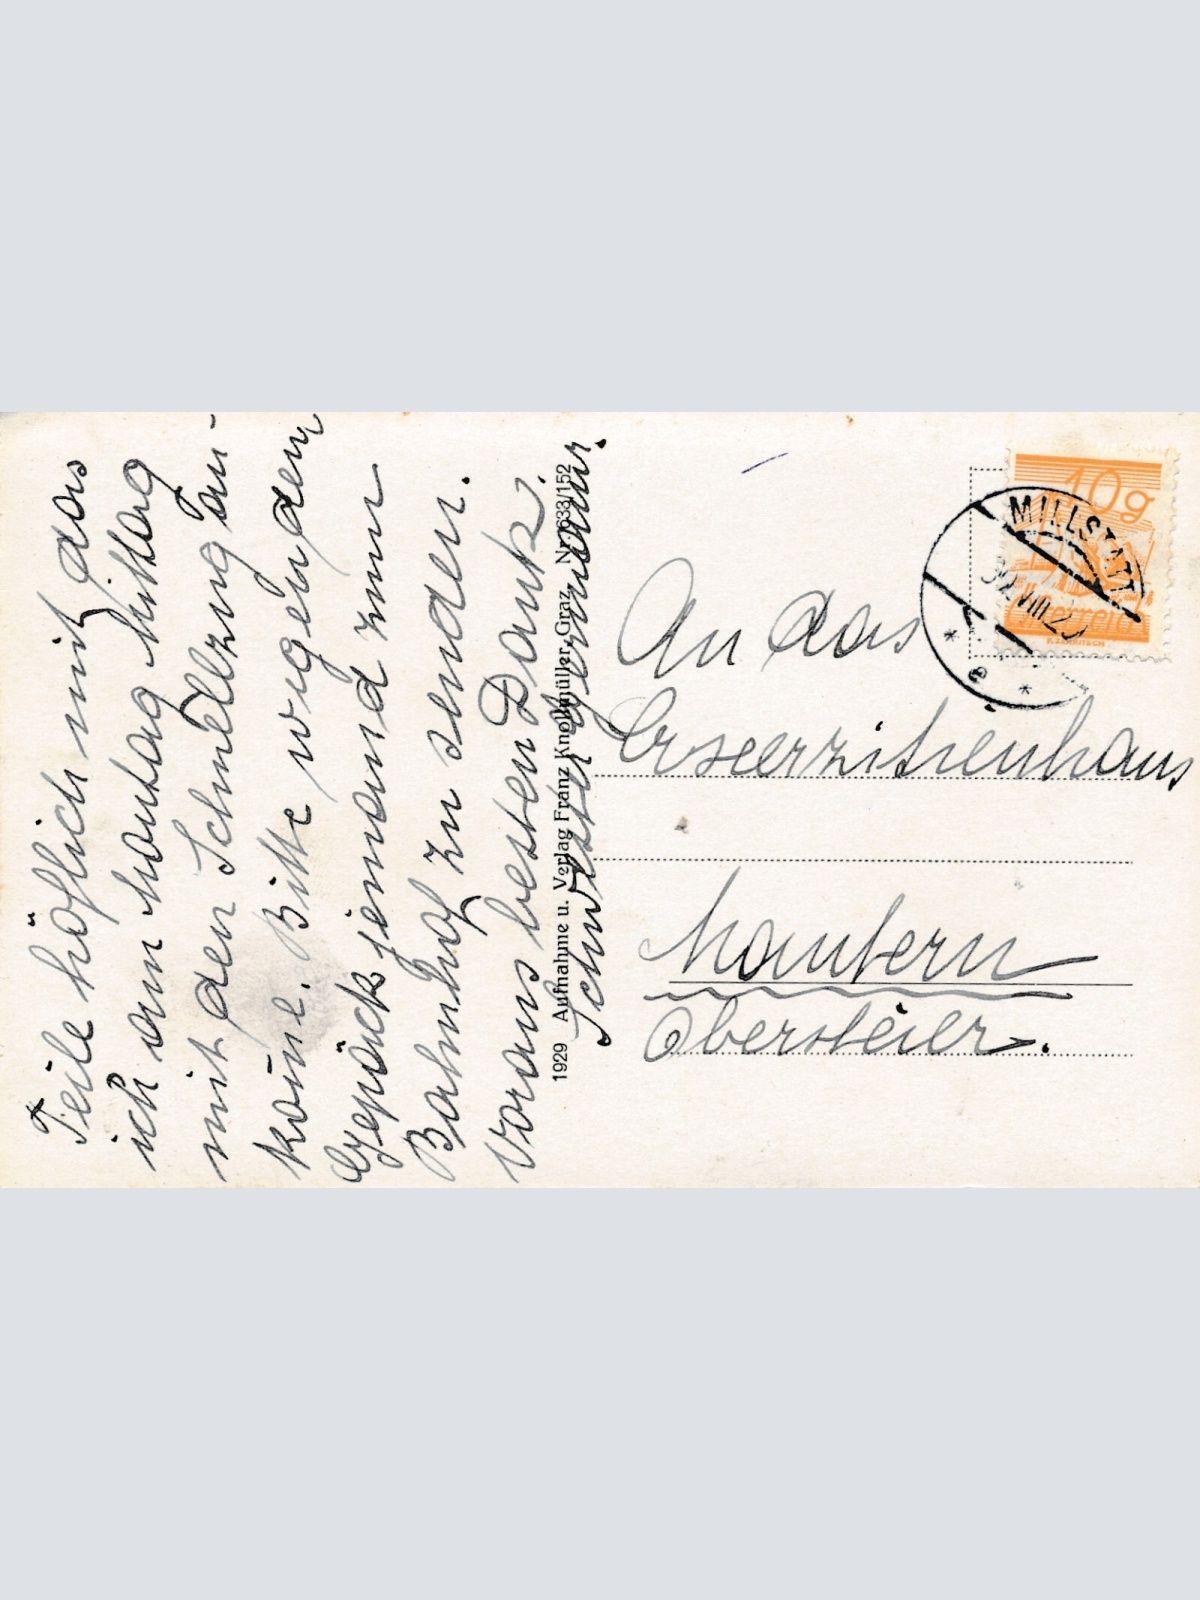 Teile höflich mit das
ich am Montag Mittag
mit den Schnellzug an-
kome. Bitte wegen dem
Gepäck jemand zum
Bahnhof zu senden.
Voraus besten Dank.
Schwester
1929 Aufnahme u. Verlag Franz Knollmüller, Graz. Nr. 633/152
10g
Österreich
MILLSTATT
30.VIII.29
* e *
An das
Erseerzitienhaus
Mautern
Obersteier.